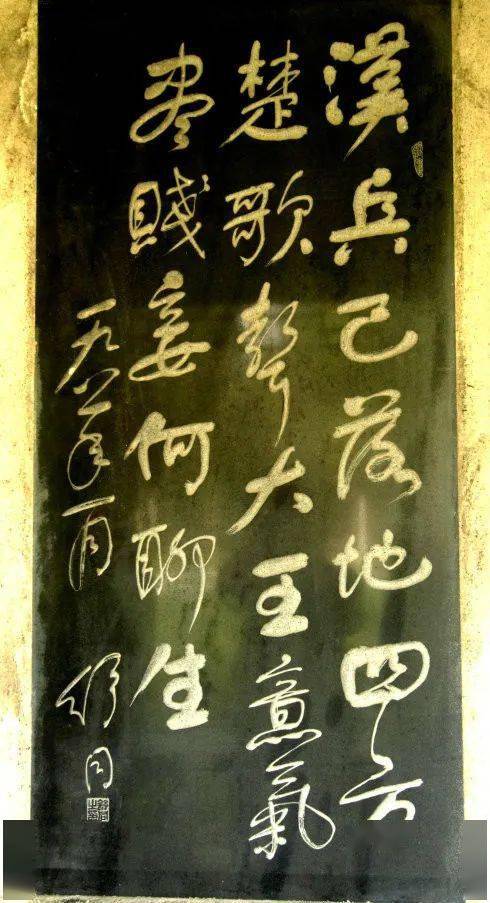 漢兵已落地四方
楚歌聲大王意氣
盡賤妾何聊生
一九八一年一月 舒同